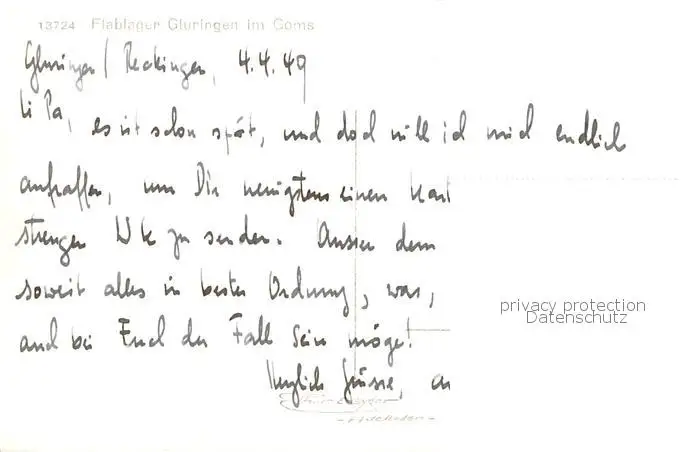 13724 Flablager Gluringen im Goms
Gluringen / Reckingen, 4.4.49
Li Pa, es ist schon spät, und doch will ich mich endlich
aufraffen, um Dir wenigstens einen
strengen WK zu senden. Ausser dem
soweit alles in bester Ordnung, was,
auch bei Euch der Fall sein möge!
Herzlich Grüsse,
privacy protection
Datenschutz
- Adelboden -